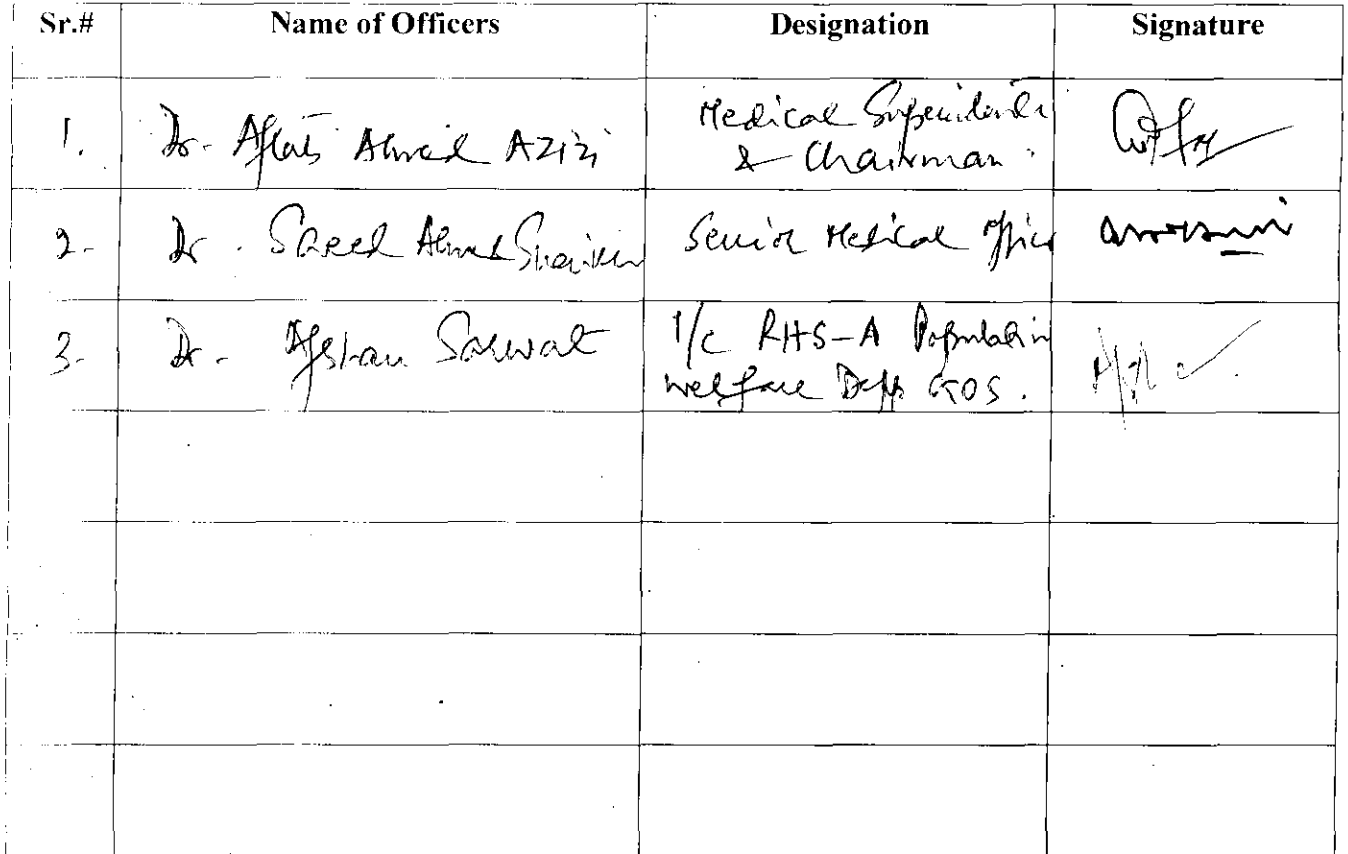 Sr.# Name of Officers Designation Signature
1. Dr. Aftab Ahmed Azizi Medical Superintendent
& Chairman.
2- Dr. Saeed Ahmed Shaikh Senior Medical Officer
3- Dr. Afshan Sarwat I/C RHS-A Population
welfare Deptt GOS.